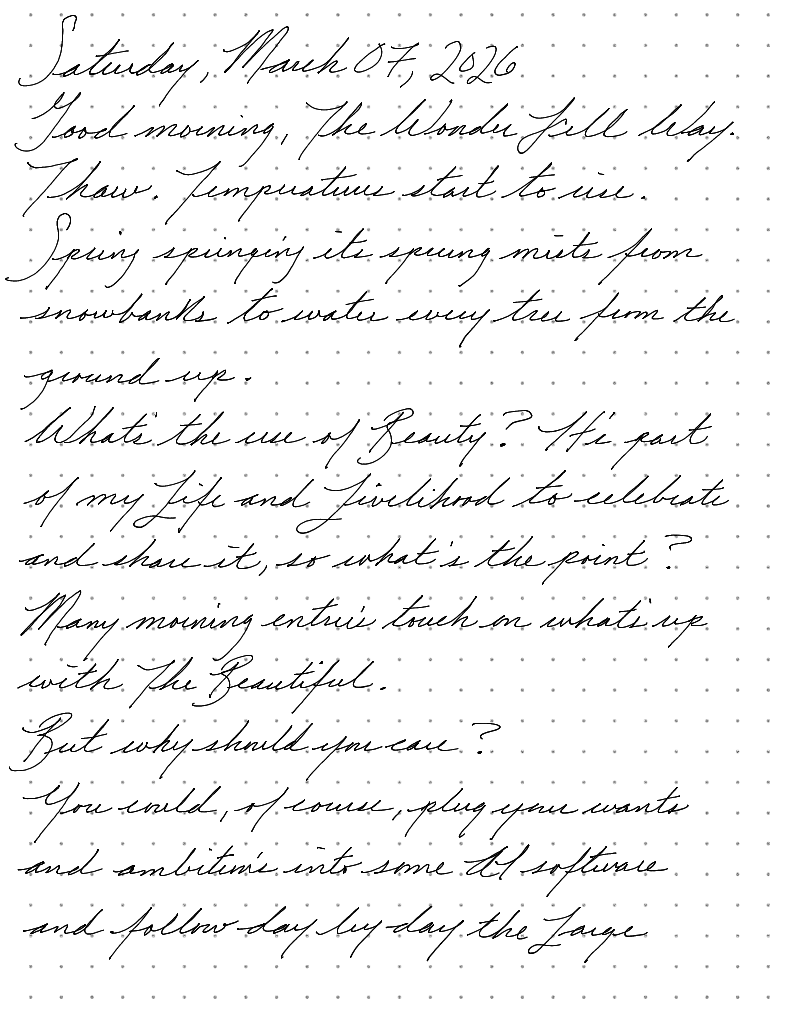 Saturday, March 07, 2026
Good morning, The Wonder Full Way.
Thaw. Temperatures start to rise.
Spring springing its sprung mists from
snowbanks to water every tree from the
ground up.
What's the use of Beauty? It's part
of my Life and Livelihood to celebrate
and share it, so what's the point?
Many morning entries touch on what's up
with The Beautiful.
But why should you care?
You could, of course, plug your wants
and ambitions into some AI software
and follow day by day the Large